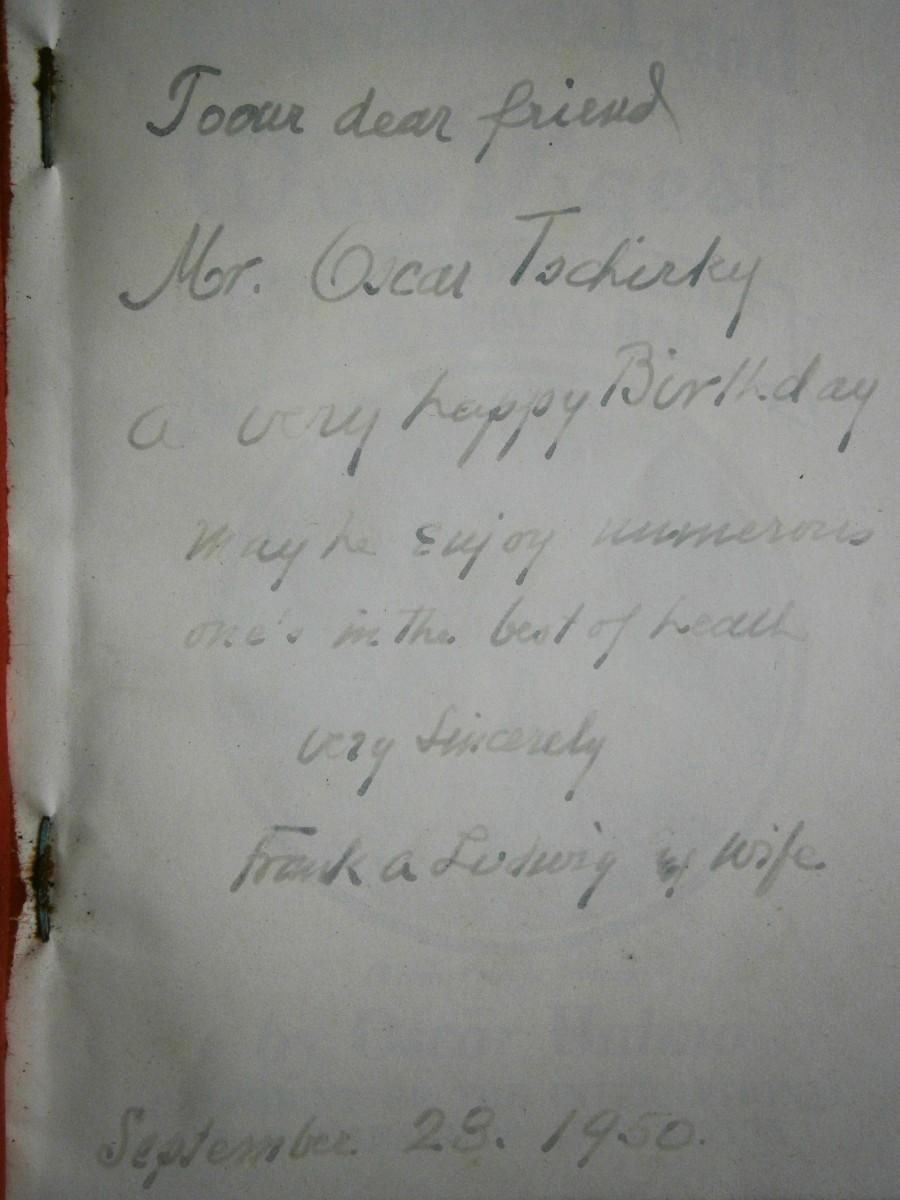 To our dear friend
Mr. Oscar Tschirky
a very happy Birthday
may he Enjoy numerous
one's in the best of health
very Sincerely
Frank A Ludwig & wife
September 28. 1950.